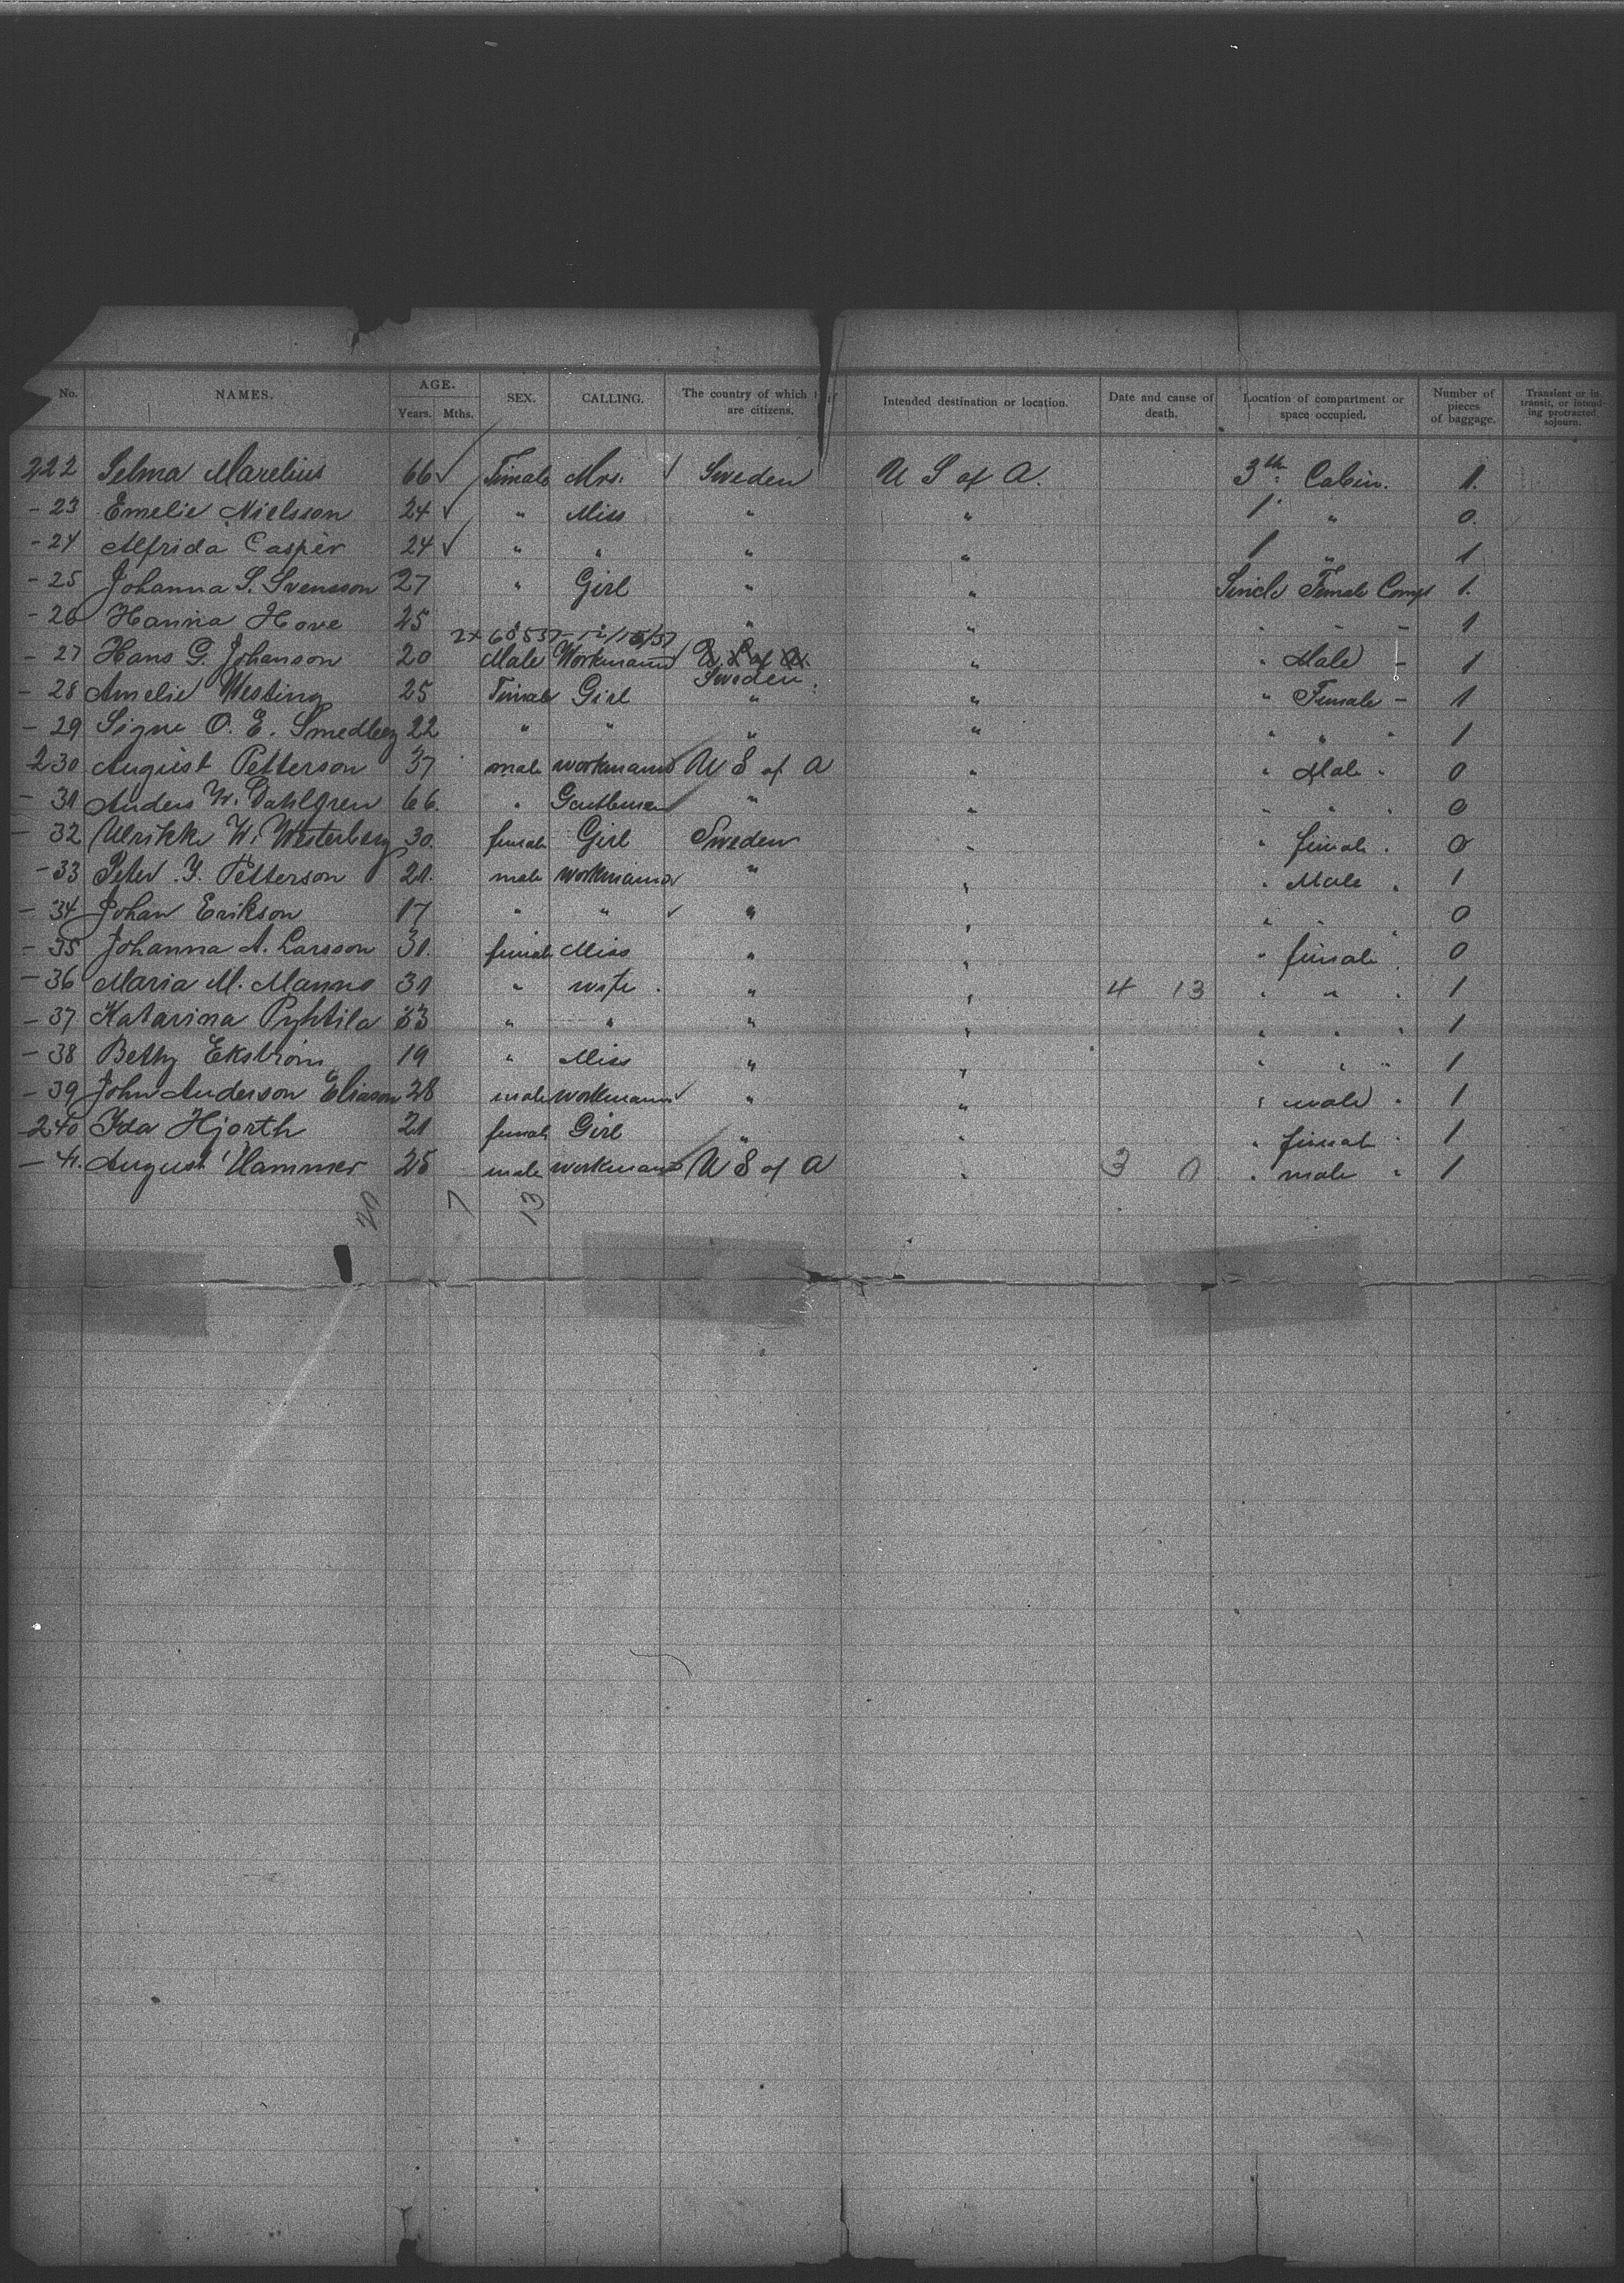 No. NAMES. AGE. Years. Mths. SEX. CALLING. The country of which they are citizens. Intended destination or location. Date and cause of death. Location of compartment or space occupied. Number of pieces of baggage. Transient or in transit, or intending protracted sojourn.
222 Selma Marelius 66 ✓ Female Mrs. ✓ Sweden U S of A. 3th Cabin. 1.
- 23 Emelie Nielsson 24 ✓ " Miss " " 1 " 0.
- 24 Alfrida Caspér 24 ✓ " " " " 1 " 1
- 25 Johanna S. Svensson 27 " Girl " " Female Comp 1.
- 26 Hanna Hove 25 " " " - - 1
2x 60537 - 12/15/37
- 27 Hans G. Johanson 20 Male Workmann U. S. of A. " " Male - 1
Sweden
- 28 Amelie Westing 25 Female Girl " " " Female - 1
- 29 Signe O. E. Smedberg 22 " " " " " " " 1
230 August Petterson 37 male workmann U S of A " " Male " 0
- 31 Anders W. Dahlgren 66. " Gentleman " " " " " 0
- 32 Ulrikke W. Westerberg 30. female Girl Sweden " " female " 0
- 33 Peter J. Petterson 21. male workmann " " " Male " 1
- 34 Johan Erikson 17 " " ✓ " " " " " 0
- 35 Johanna A. Larsson 31. female Miss " " " female " 0
- 36 Maria M. Manns 31 " wife " " 4 13 " " " 1
- 37 Katarina Pyhtila 33 " " " " " " " 1
- 38 Betty Ekström 19 " Miss " " " " " 1
- 39 John Anderson Eliason 28 male workmann ✓ " " " male " 1
240 Ida Hjorth 21 female Girl " " " female " 1
- 41. August Hammer 25 male workmann U S of A " 3 0 " male " 1
20 7 13